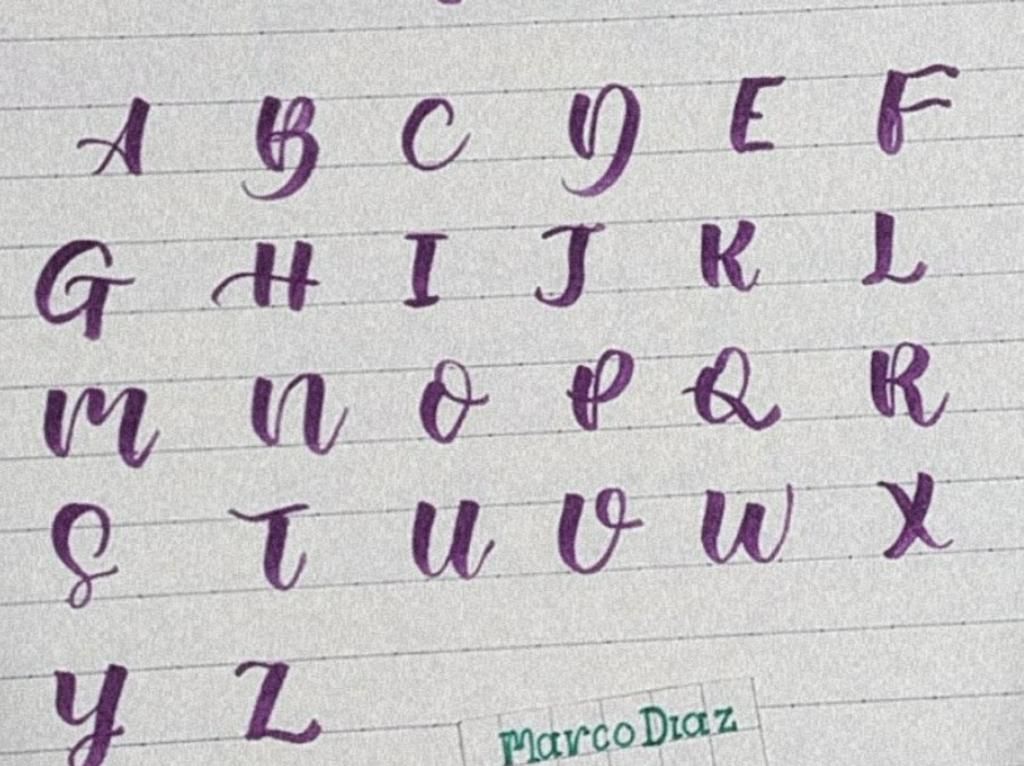 A B C D E F
G H I J K L
M N O P Q R
S T U V W X
Y Z
Marco Diaz